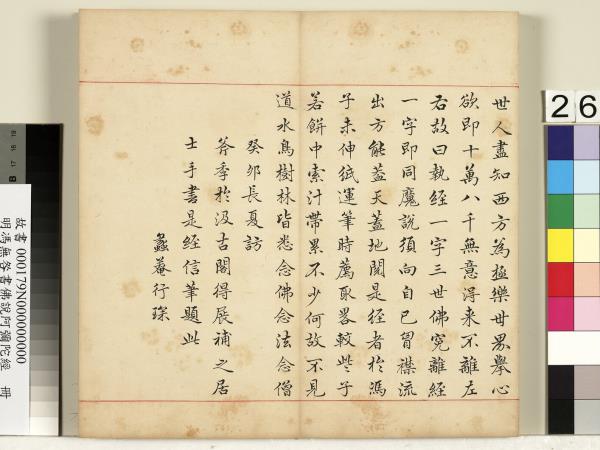 世人盡知西方為極樂世界擧心
欲即十萬八千無意得来不離左
右故曰執經一字三世佛寃離經
一字即同魔說須向自已胷襟流
出方能葢天葢地閱是經者於馮
子未伸紙運筆時薦取畧較些子
若餅中索汁帶累不少何故不見
道水鳥樹林皆悉念佛念法念僧
癸卯長夏訪
斧季於汲古閣得展補之居
士手書是經信筆題此
蠡菴行琛
26
故書000179N000000000
明馮無咎書佛說阿彌陀經 冊